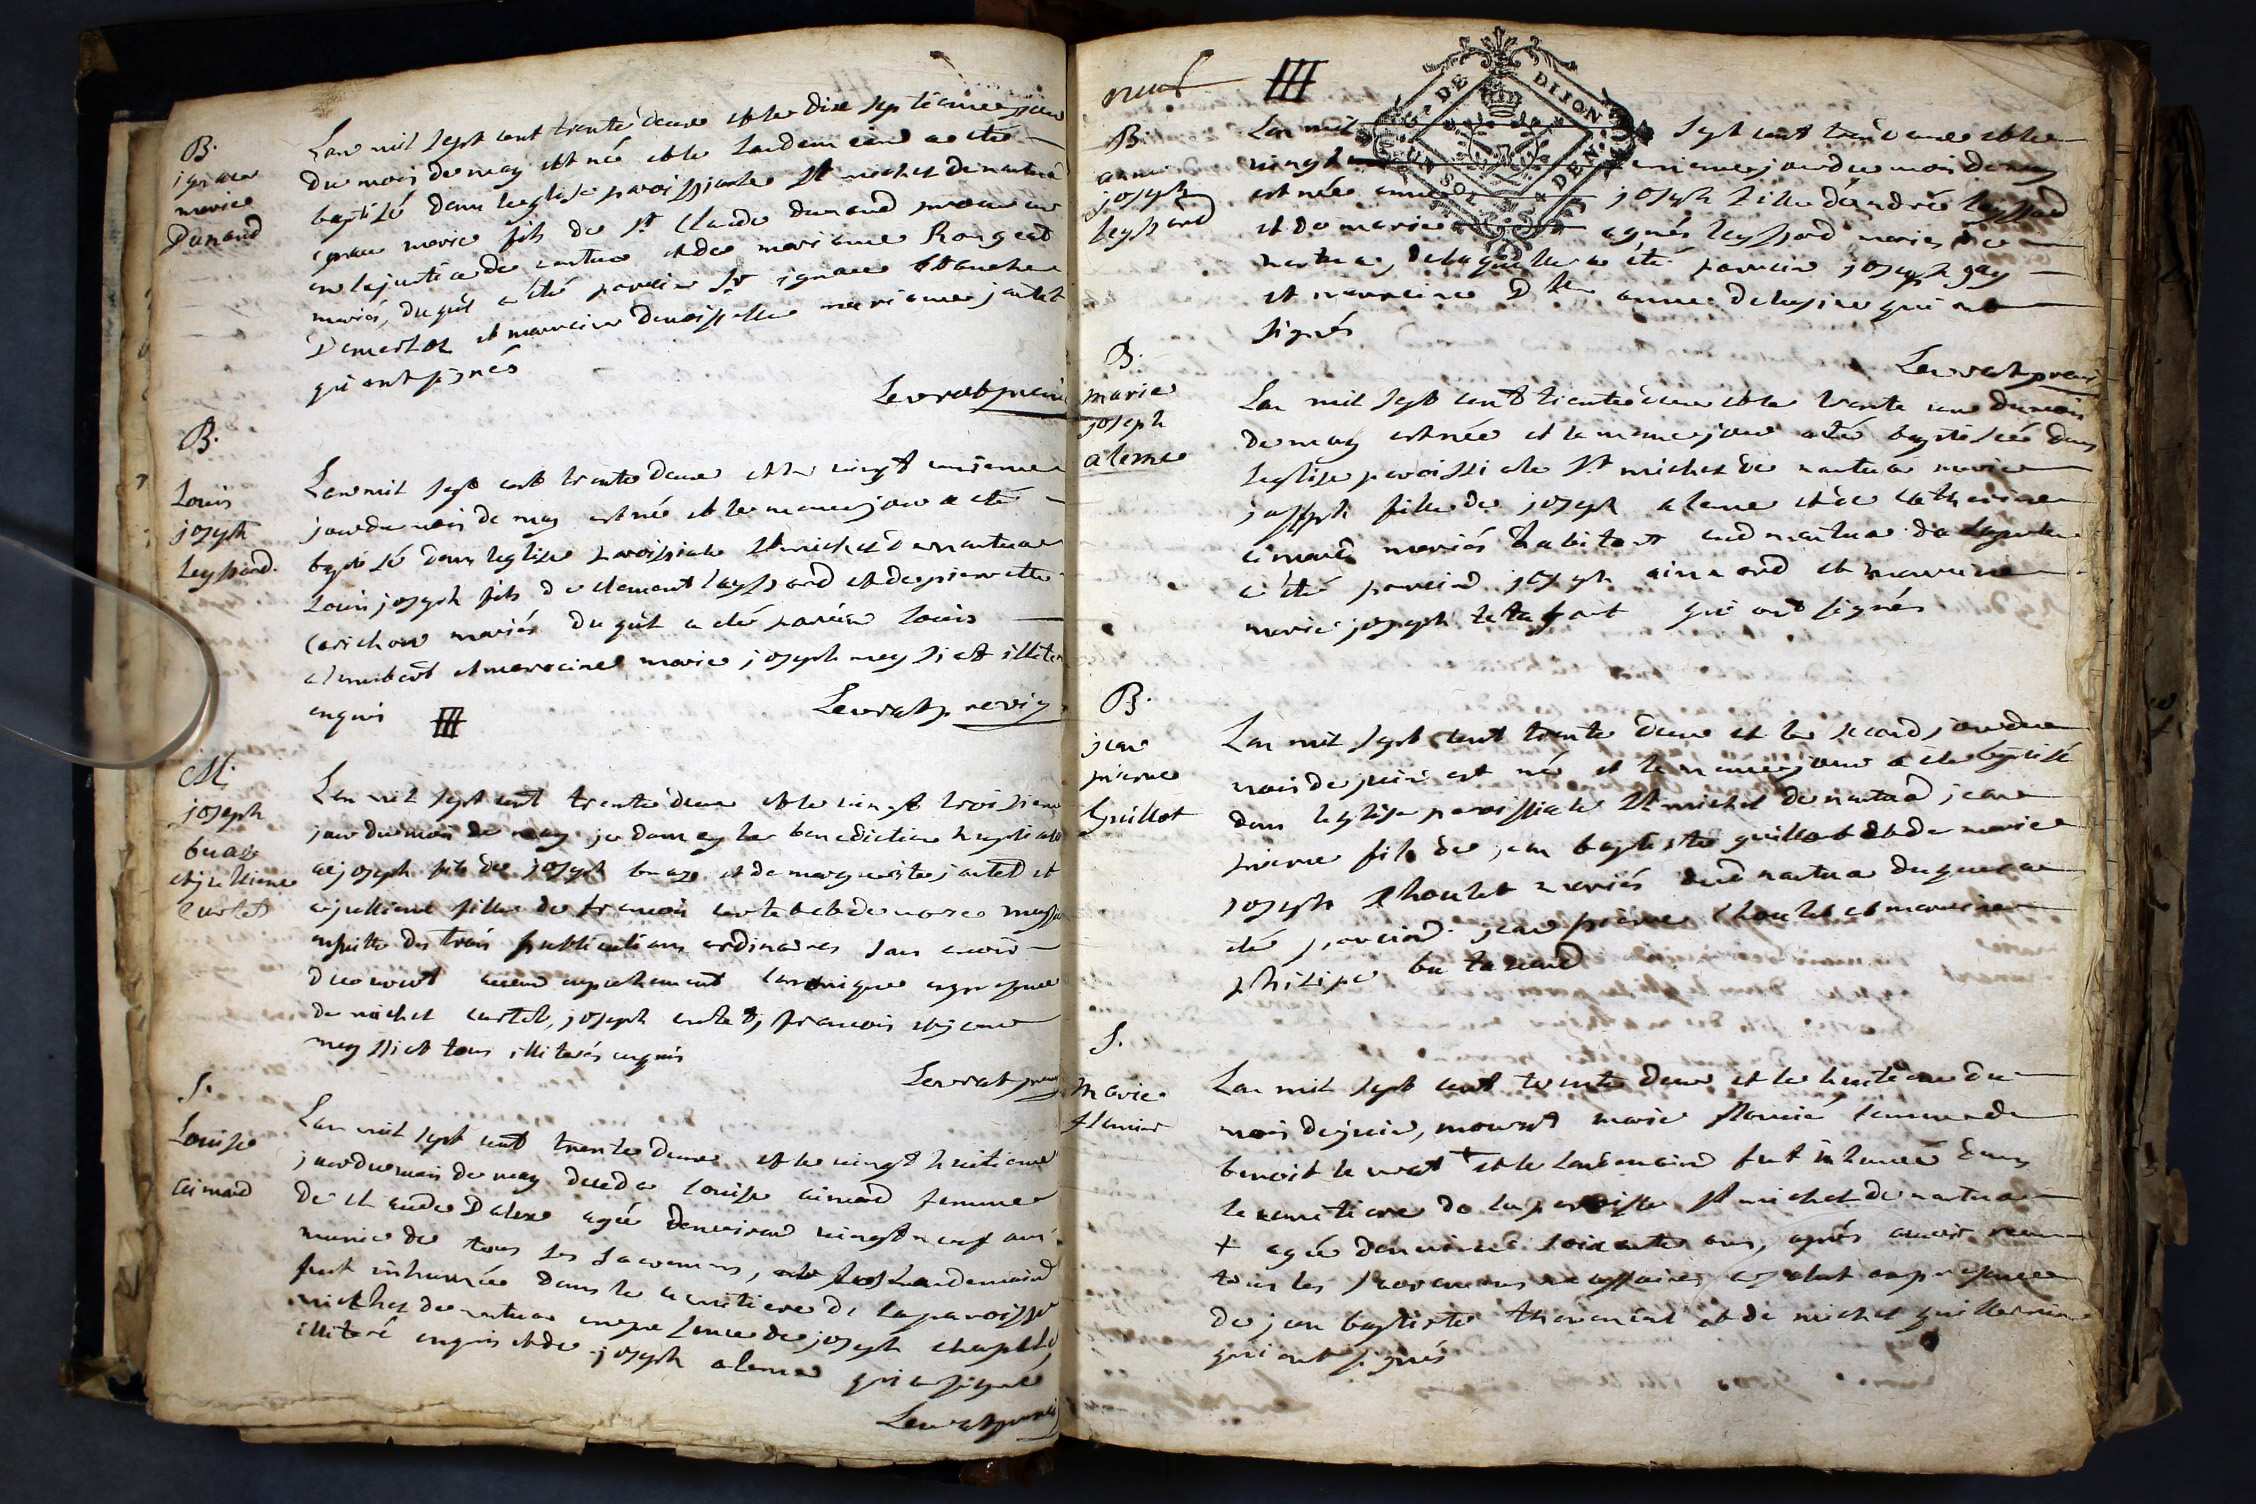 B.
ignace
marie
Dunand
Lan mil sept cent trente deux et le dixe septieme jour
du mois de may est né et le landemain a eté
baptisé dans leglise paroissiale St michel de nantua
ignace marie fils de Sr Claude dunand procureur
en la justice de nantua et de mariane Rougeat
mariés, duquel a été parain Sr ignace blanchet
et maraine demoiselle mariane jantet
qui ont signés
Levrat
B.
Louis
joseph
Leyssard.
Lan mil sept cent trente deux et le vingt unieme
jour du mois de may est né et le meme jour a eté
baptisé dans leglise paroissiale St michel de nantua
Louis joseph fils de clement leyssard et de pierrette
Carichon mariés duquel a eté parain Louis
et maraine marie joseph meyssiat illiteré
enquis
Levrat
M.
joseph
buaz
et jullienne
Curtet
Lan mil sept cent trente deux et le vingt troisieme
jour du mois de may je donney la benediction nuptiale
a joseph fils de joseph buaz et de marguerite jantet et
a jullienne fille de francois curtet et de
ensuitte des trois publications ordinaires sans avoir
decouvert aucun empechement canonique en presence
de michel curtet, joseph curtet, francois et jean
meyssiat tous illiterés enquis
Levrat
S.
Louise
aimard
Lan mil sept cent trente deux et le vingt huitieme
jour du mois de may deceda louise aimard femme
de claude Dalex agée denviron vingt neuf ans
munie de tous les sacremens, et le landemain
fut inhumée dans le cemetiere de la paroisse
michel de nantua en presence de joseph chapelu
illiteré enquis et de joseph aleme qui a signé
Levrat
neuf
DE DIJON
UN SOL
DEN.
B
anne
joseph
leyssard
Lan mil sept cent trente deux et le
vingt unieme jour du mois de may
est née anne joseph fille dandré leyssard
et de marie agnés leyssard mariés de
nantua, de laquelle a été parain joseph gay
et marraine Dlle anne delesine qui ont
signés
Levrat
B.
marie
joseph
aleme
Lan mil sept cent trente deux et le trente un du mois
de may est née et le meme jour a été baptisée dans
leglise paroissiale St michel de nantua marie
joseph fille de joseph aleme et de catherine
aimard mariés habitant aud nantua de laquelle
a été parain joseph aimard et marraine
marie joseph tetafort qui ont signés
B.
jean
pierre
Guillot
Lan mil sept cent trente deux et le second jour du
mois de juin est né et le meme jour a été baptisé
dans leglise paroissiale St michel de nantua jean
pierre fils de jean baptiste guillot et de marie
joseph Choulet mariés dud nantua duquel a
été parain jean pierre Choulet et marraine
philipe butavand
S.
Marie
flamier
Lan mil sept cent trente deux et le huitieme du
mois de juin, mourut marie flamier femme de
benoit levrat + et le landemain fut inhumée dans
le cemetiere de la paroisse St michel de nantua
+ agée denviron soixante ans, aprés avoir receu
tous les sacremens necessaires en presence
de jean baptiste thevenin et de michel guillermin
qui ont signés